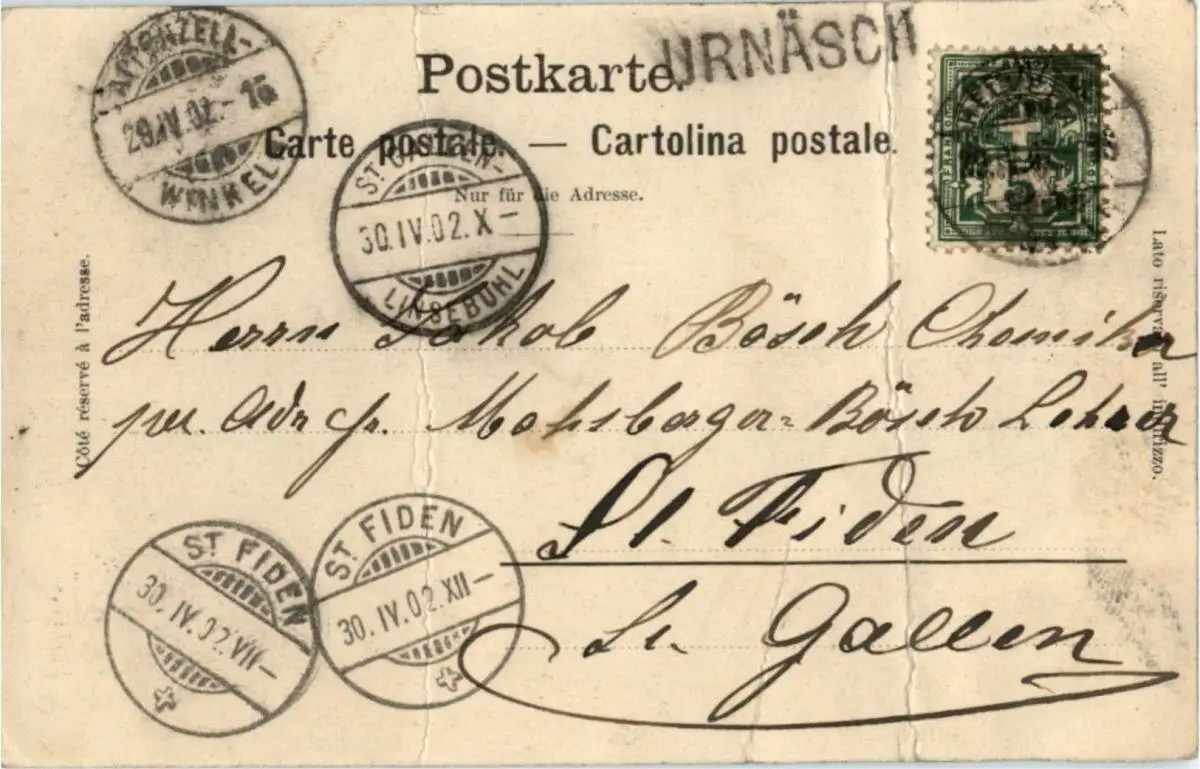 URNÄSCH
Postkarte.
Carte postale. — Cartolina postale.
Nur für die Adresse.
APPENZELL-
29.IV.02.-
WINKEL
ST GALLEN-
30.IV.02.X-
LINSEBÜHL
Côté réservé à l'adresse.
Lato riservato all' indirizzo.
Herrn Jakob Bösch Chemiker
per. Adr. Bösch Lehrer
St. Fiden
St. Gallen
ST FIDEN
30. IV. 02. VII-
ST FIDEN
30. IV. 02. XII-